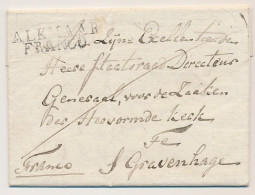 ALKMAAR
FRANCO
Zijne Excellentie de
Heere Staatsraad Directeur
Generaal, voor de Zaaken
der Hervormde Kerk
Te
S Gravenhage
Franco